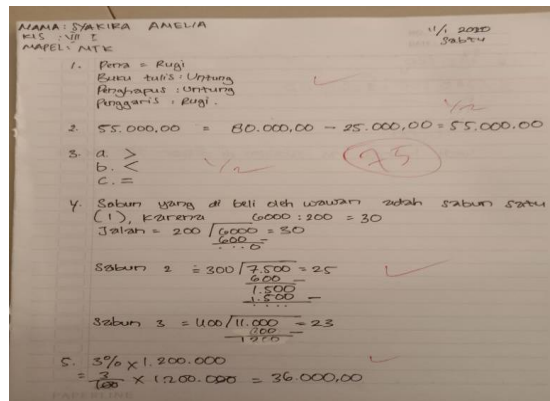 NAMA : SYAKIRA AMELIA
KLS : VIII I
MAPEL : MTK
11/1 2020
Sabtu
1. Pena = Rugi
Buku tulis : Untung
Penghapus : Untung
Penggaris : Rugi.
1/2
2. 55.000,00 = 80.000,00 - 25.000,00 = 55.000.00
3. a. >
b. <
c. =
1/2
75
4. Sabun yang di beli oleh wawan adah sabun satu
(1), karena 6000 : 200 = 30
Jalan = 200 / 6000 = 30
600 -
...0
Sabun 2 = 300 / 7.500 = 25
600 -
1.500
1.500 -
....
Sabun 3 = 400 / 11.000 = 23
800 -
5. 3% x 1.200.000
= 3/100 x 1.200.000 = 36.000,00